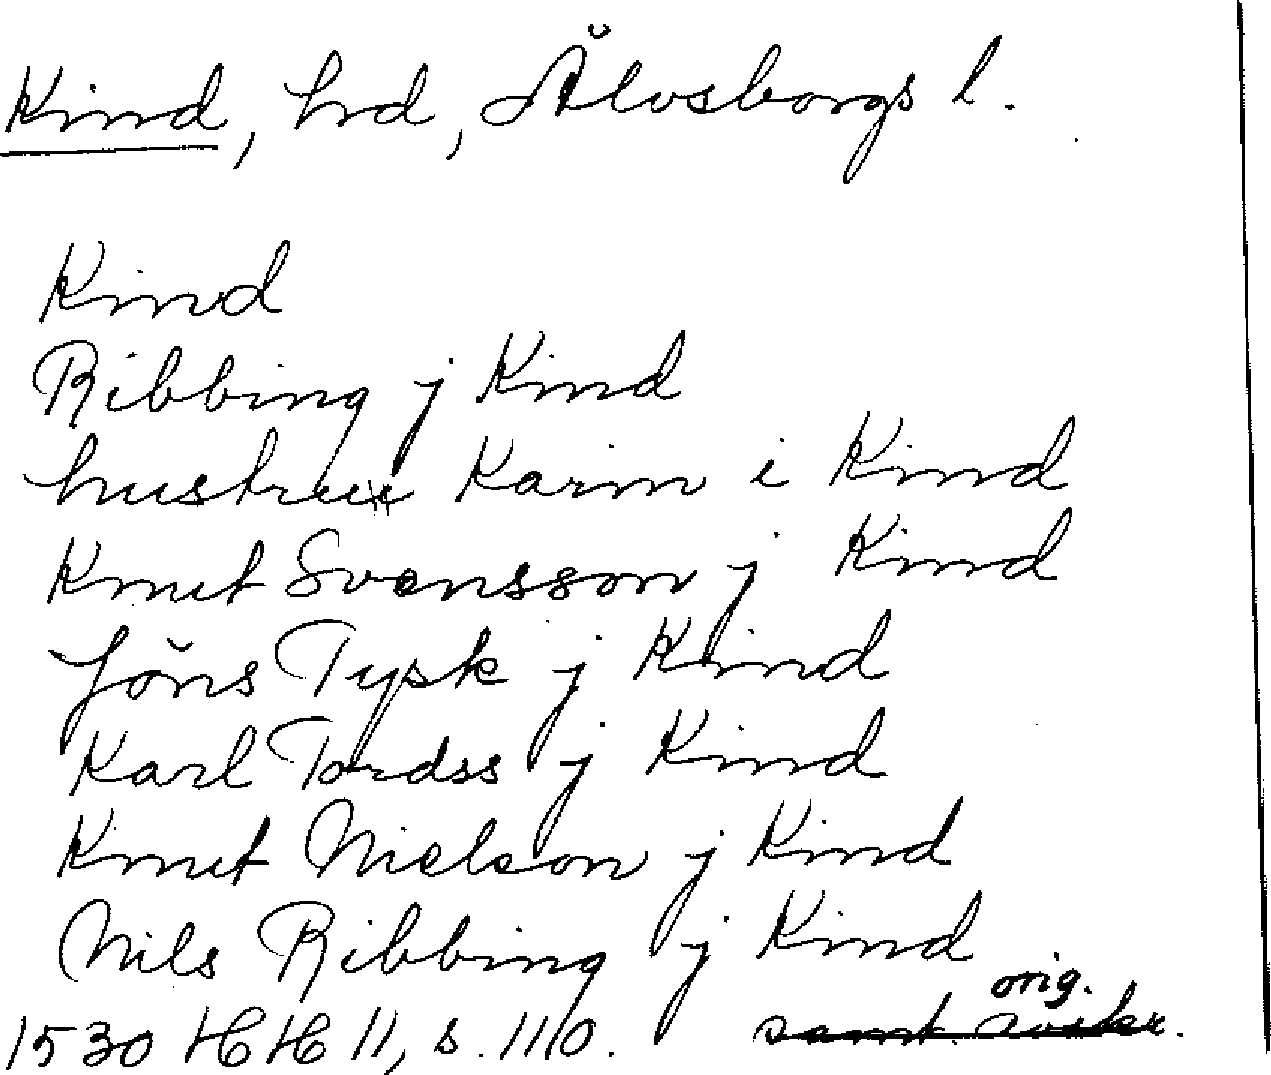 Kind, hd, Älvsborgs l.
Kind
Ribbing j Kind
hustrue Karin i Kind
Knut Svensson j Kind
Jöns Tysk j Kind
Karl Tordss j Kind
Knut Nielson j Kind
Nils Ribbing j Kind
orig.
1530 HH 11, s. 110. samt. avskr.